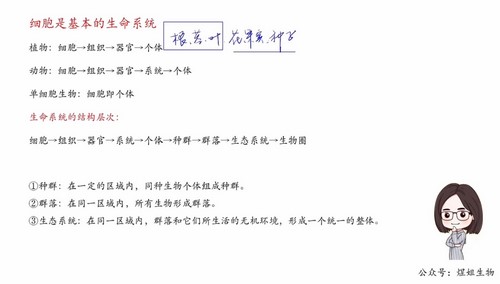 细胞是基本的生命系统
植物：细胞→组织→器官→个体 根、茎、叶 花、果实、种子
动物：细胞→组织→器官→系统→个体
单细胞生物：细胞即个体
生命系统的结构层次：
细胞→组织→器官→系统→个体→种群→群落→生态系统→生物圈
①种群：在一定的区域内，同种生物个体组成种群。
②群落：在同一区域内，所有生物形成群落。
③生态系统：在同一区域内，群落和它们所生活的无机环境，形成一个统一的整体。
公众号：煜姐生物